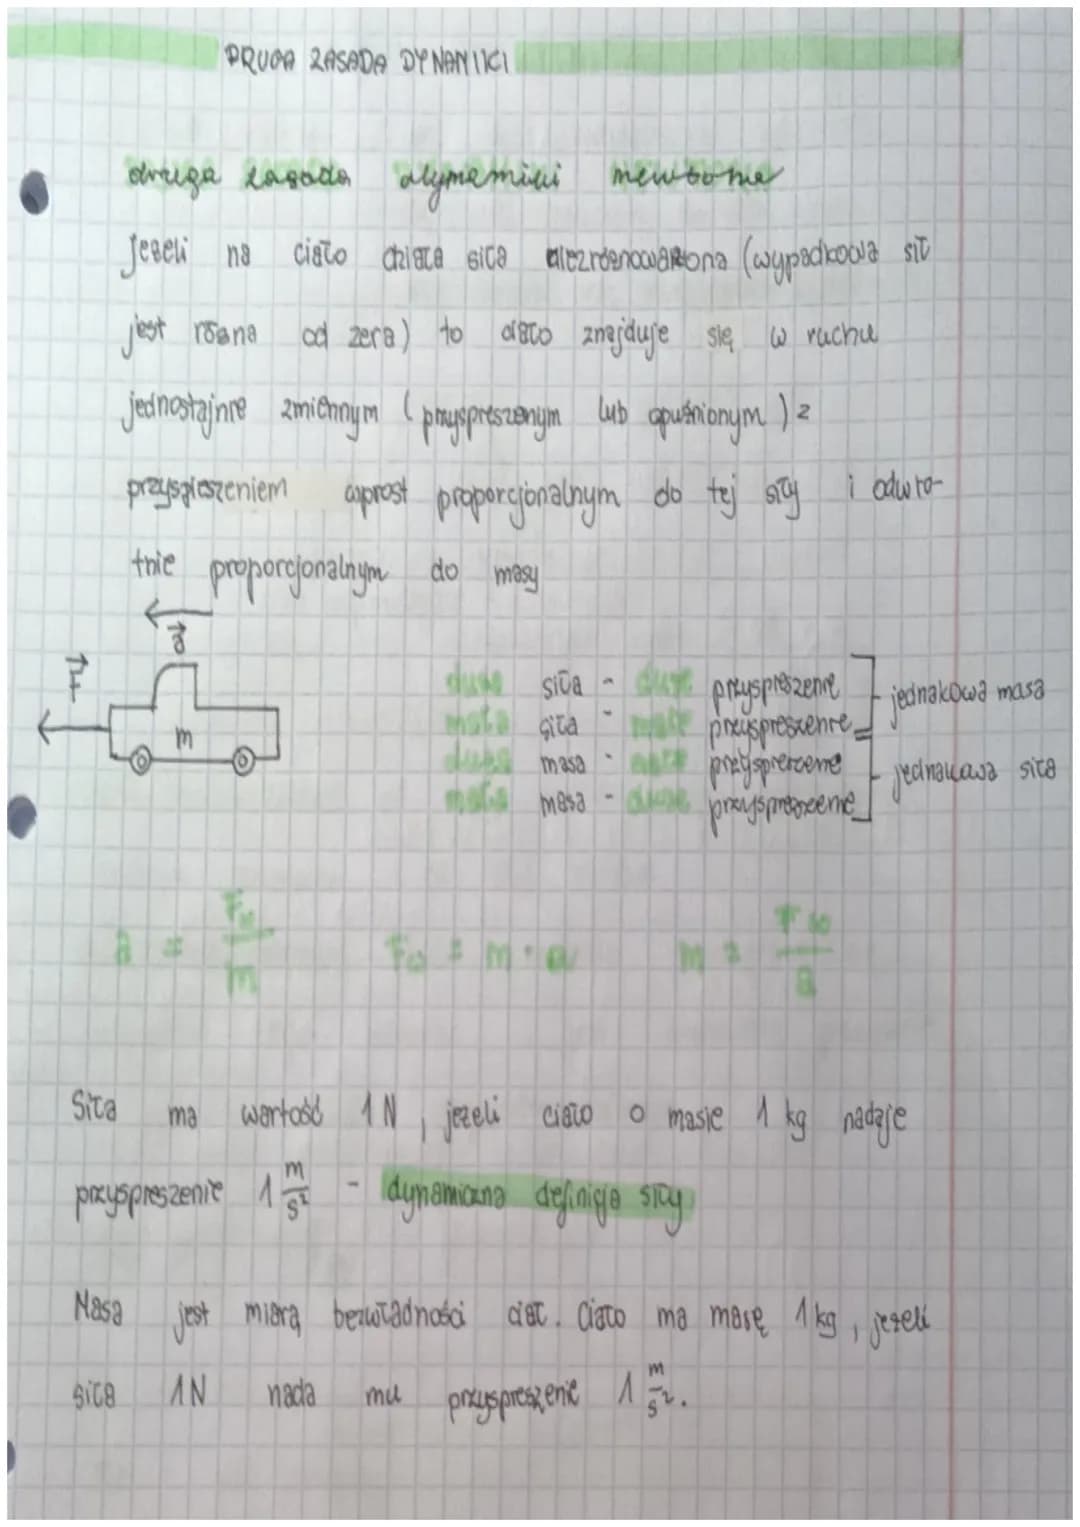 DRUGA ZASADA DYNAMIKI
druga zasada dynamiki newtona
Jeżeli na ciało działa siła niezrównoważona (wypadkowa sił
jest równa od zera) to ciało znajduje się w ruchu
jednostajnie zmiennym (przyspieszonym lub opóźnionym) z
przyspieszeniem wprost proporcjonalnym do tej siły i odwro-
tnie proporcjonalnym do masy
a⃗
F⃗
m
duża siła - duże przyspieszenie
mała siła - małe przyspieszenie
jednakowa masa
duża masa - małe przyspieszenie
mała masa - duże przyspieszenie
jednakowa siła
a = Fw/m Fw = m · a m = Fw/a
Siła ma wartość 1N, jeżeli ciało o masie 1 kg nadaje
przyspieszenie 1 m/s² - dynamiczna definicja siły
Masa jest miarą bezwładności ciał. Ciało ma masę 1kg, jeżeli
siła 1N nada mu przyspieszenie 1 m/s².